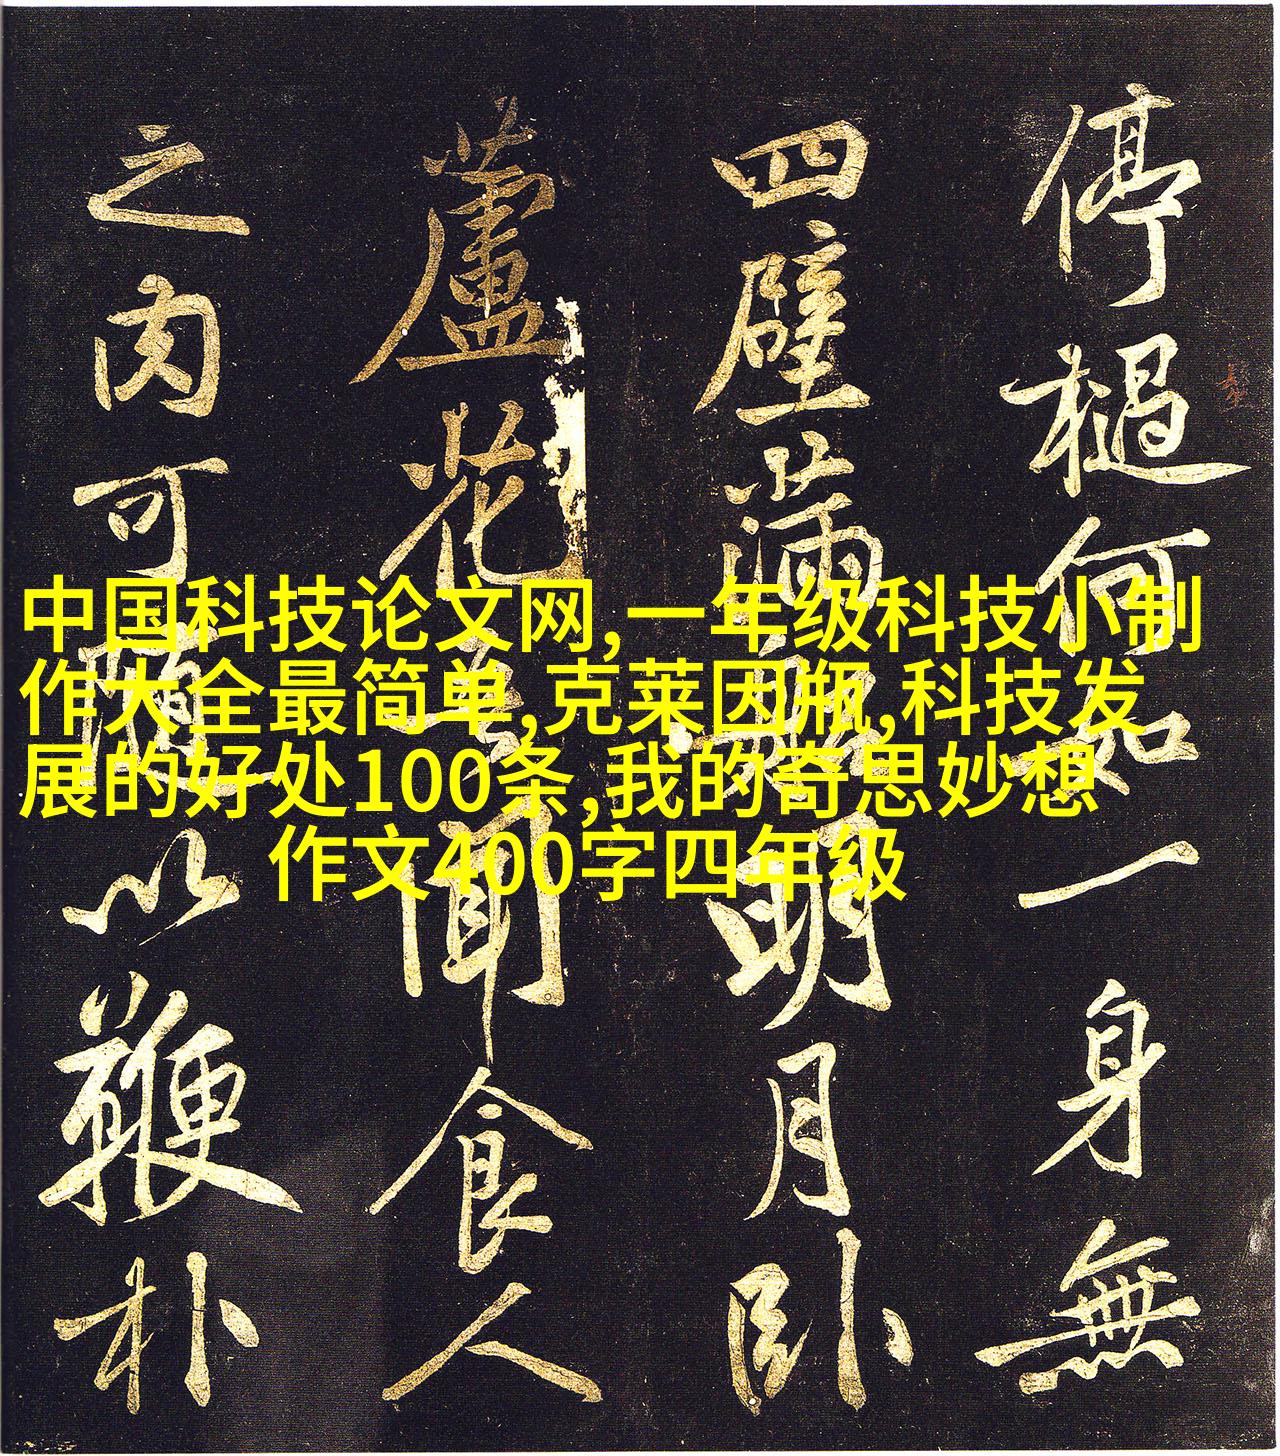 中国科技论文网,一年级科技小制
作大全最简单,克莱因瓶,科技发
展的好处100条,我的奇思妙想
作文400字四年级
停檛何如一身無
四壁滿船明月卧
蘆花吾聞食人
之肉可隨以鞭朴